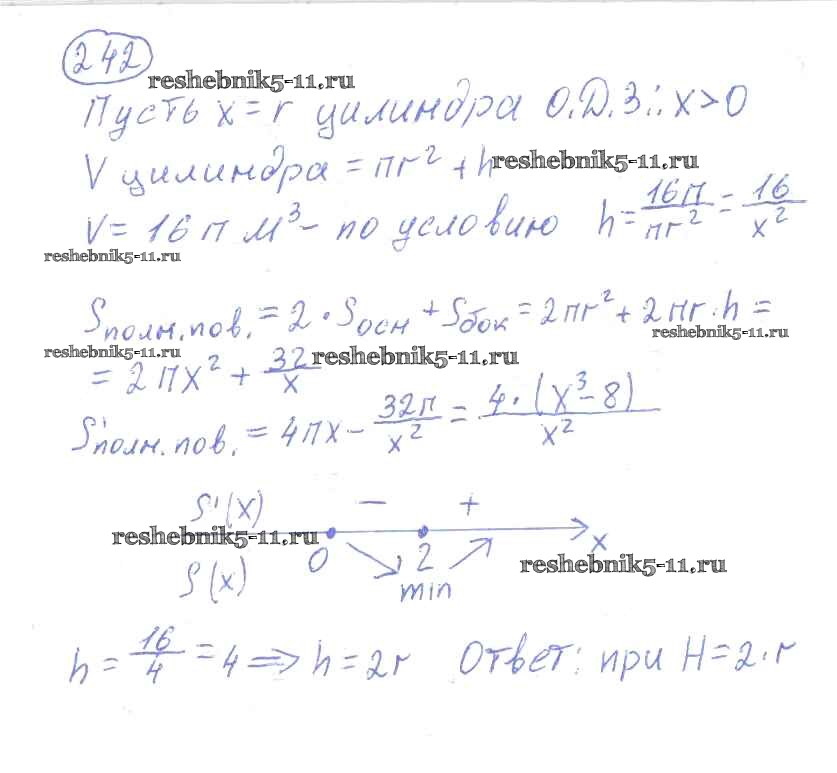 242
reshebnik5-11.ru
Пусть x = r цилиндра О.Д.З.: x > 0
V цилиндра = πr² + h reshebnik5-11.ru
V = 16π м³ - по условию h = 16π/πr² = 16/x²
reshebnik5-11.ru
Sполн.пов. = 2 · Sосн + Sбок = 2πr² + 2πr · h =
reshebnik5-11.ru
reshebnik5-11.ru
= 2πx² + 32/x reshebnik5-11.ru
S'полн.пов. = 4πx - 32π/x² = 4·(x³-8)/x²
S'(x) − +
reshebnik5-11.ru
0 2 x
reshebnik5-11.ru
S(x) min
h = 16/4 = 4 => h = 2r Ответ: при H = 2·r